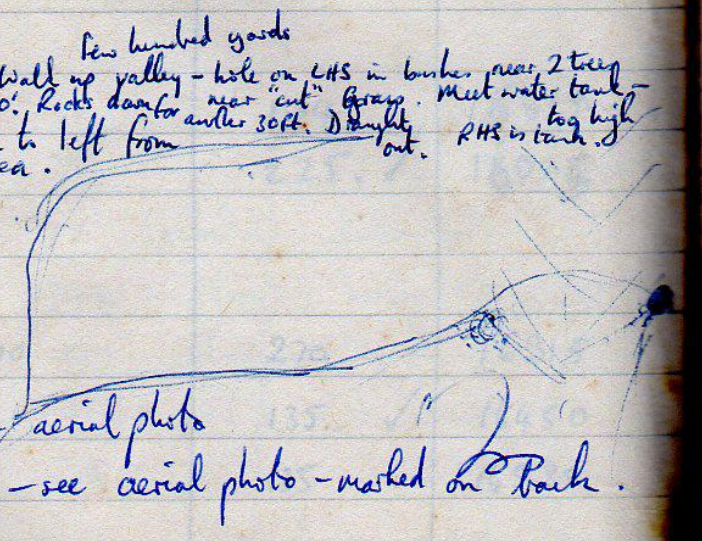 few hundred yards
Wall up valley – hole on LHS in bushes near 2 trees
0'. Rocks down for near "cut" Grays. Meet water tank –
to left from another 30ft. Draught out. RHS is tank. too high
ea.
aerial photo
– see aerial photo – marked on back.